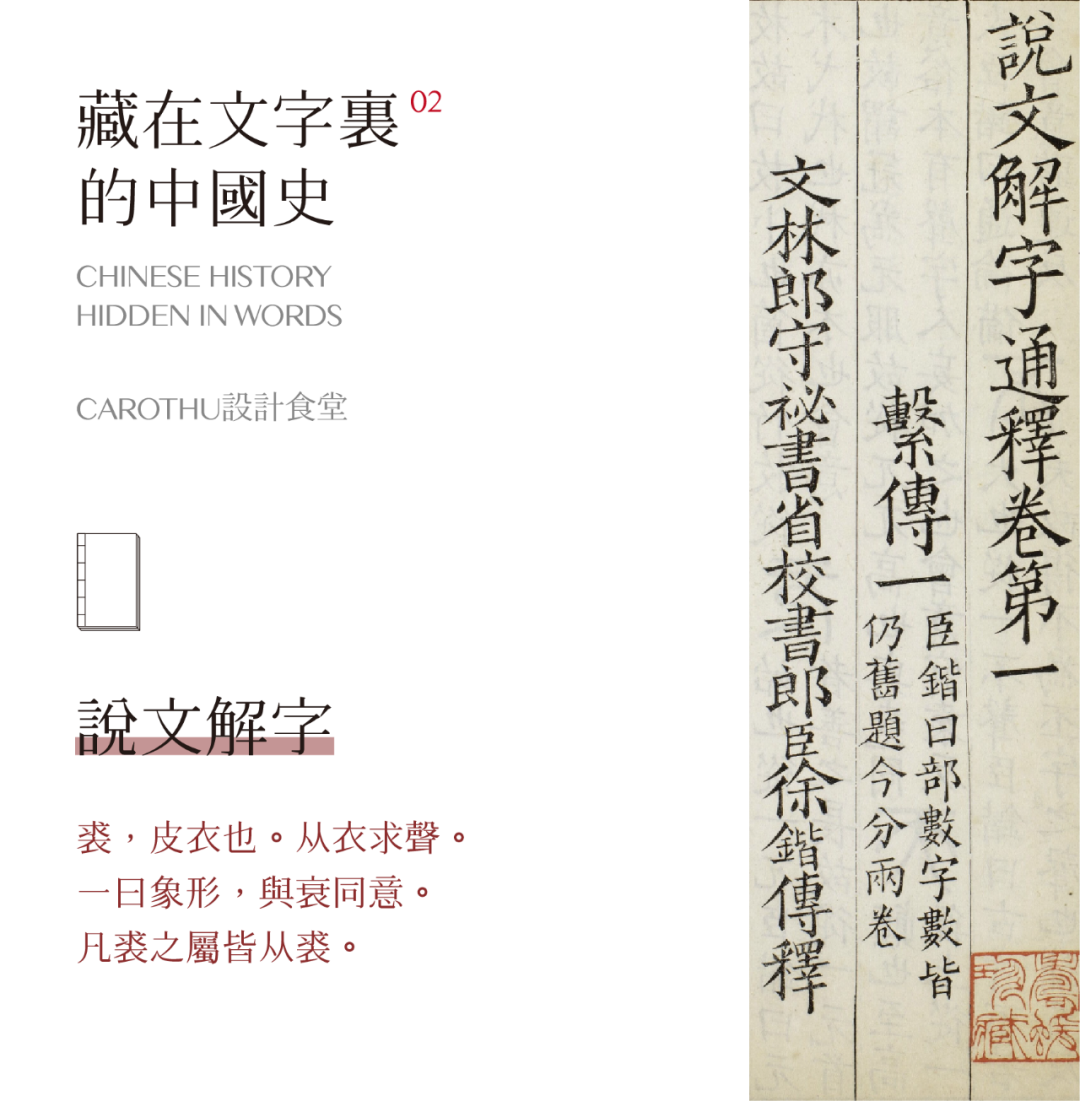 藏在文字裏 02
的中國史
CHINESE HISTORY
HIDDEN IN WORDS
CAROTHU設計食堂
說文解字
裘，皮衣也。从衣求聲。
一曰象形，與衰同意。
凡裘之屬皆从裘。
說文解字通釋卷第一
繫傳一
臣鍇曰部數字數皆
仍舊題今分兩卷
文林郎守祕書省校書郎臣徐鍇傳釋